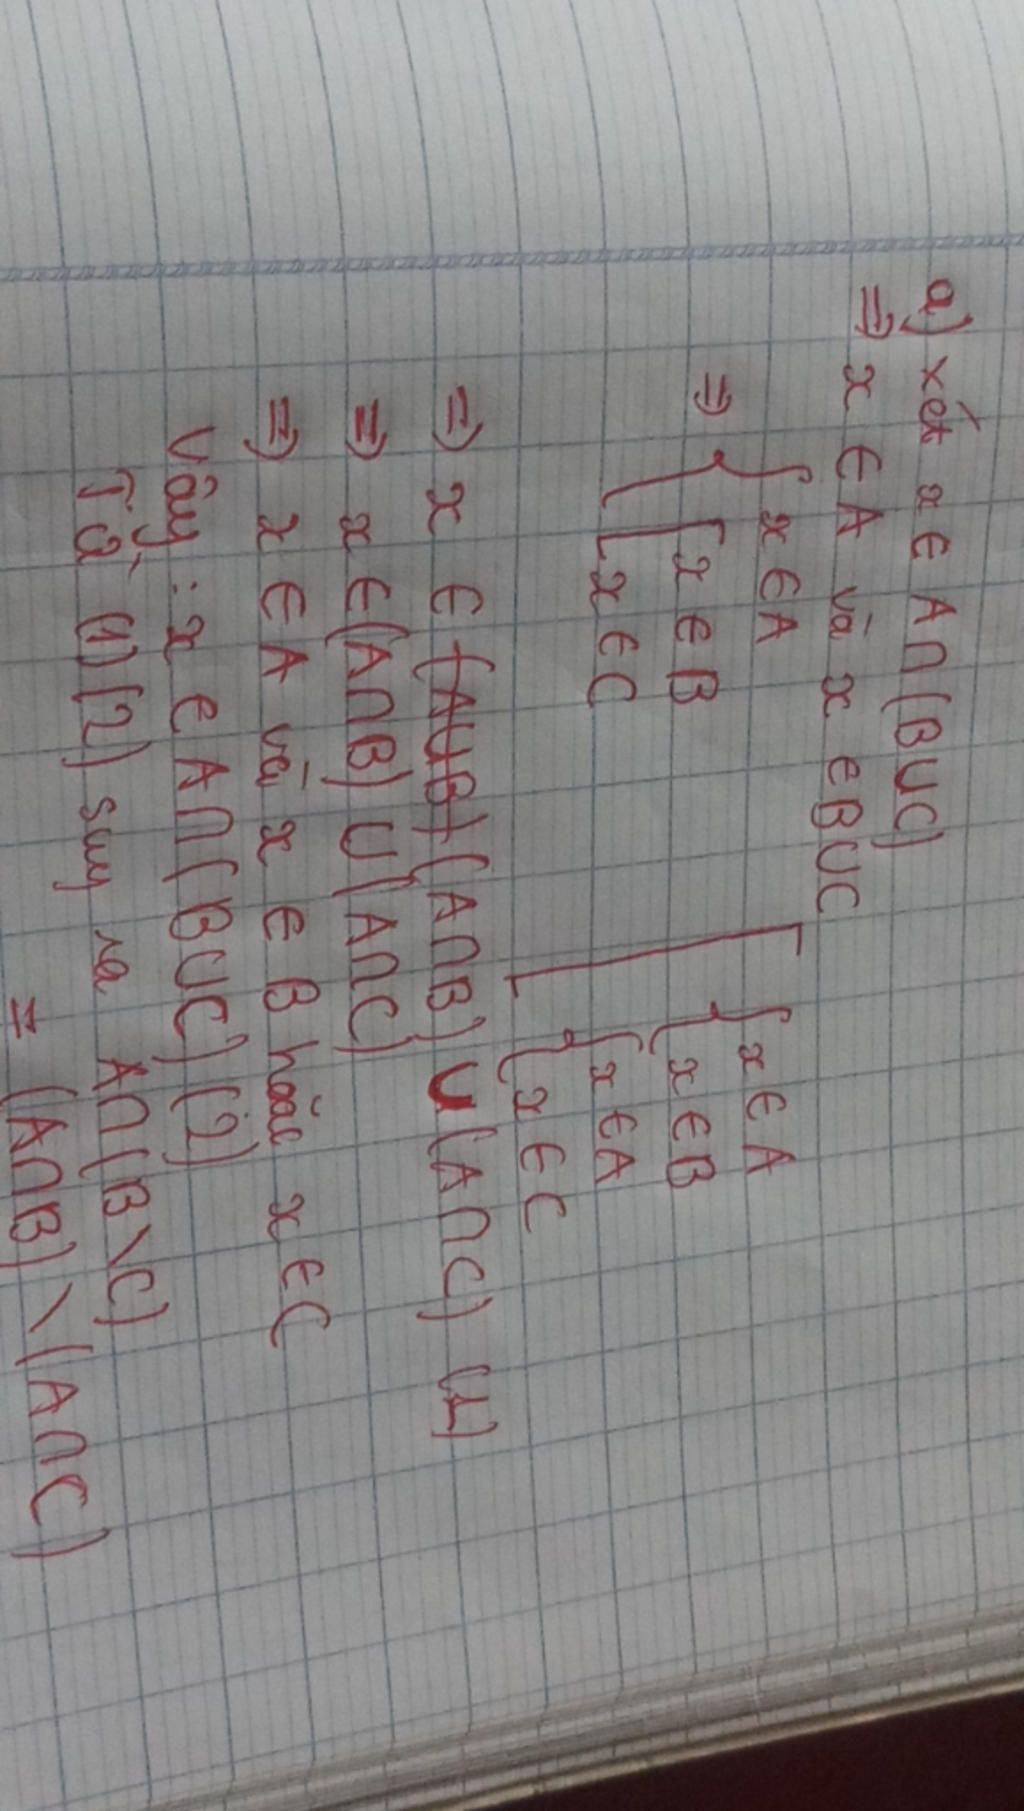 a) xét x ∈ A∩(B∪C)
⇒ x ∈ A và x ∈ B∪C
⇒ { x ∈ A
[ x ∈ B
x ∈ C
[ { x ∈ A
x ∈ B
{ x ∈ A
x ∈ C
⇒ x ∈ (A∪B) (A∩B) ∪ (A∩C) (1)
⇒ x ∈ (A∩B) ∪ (A∩C)
⇒ x ∈ A và x ∈ B hoăc x ∈ C
Vây : x ∈ A∩(B∪C) (2)
Từ (1) (2) suy ra A∩(B\C)
= (A∩B) \ (A∩C)